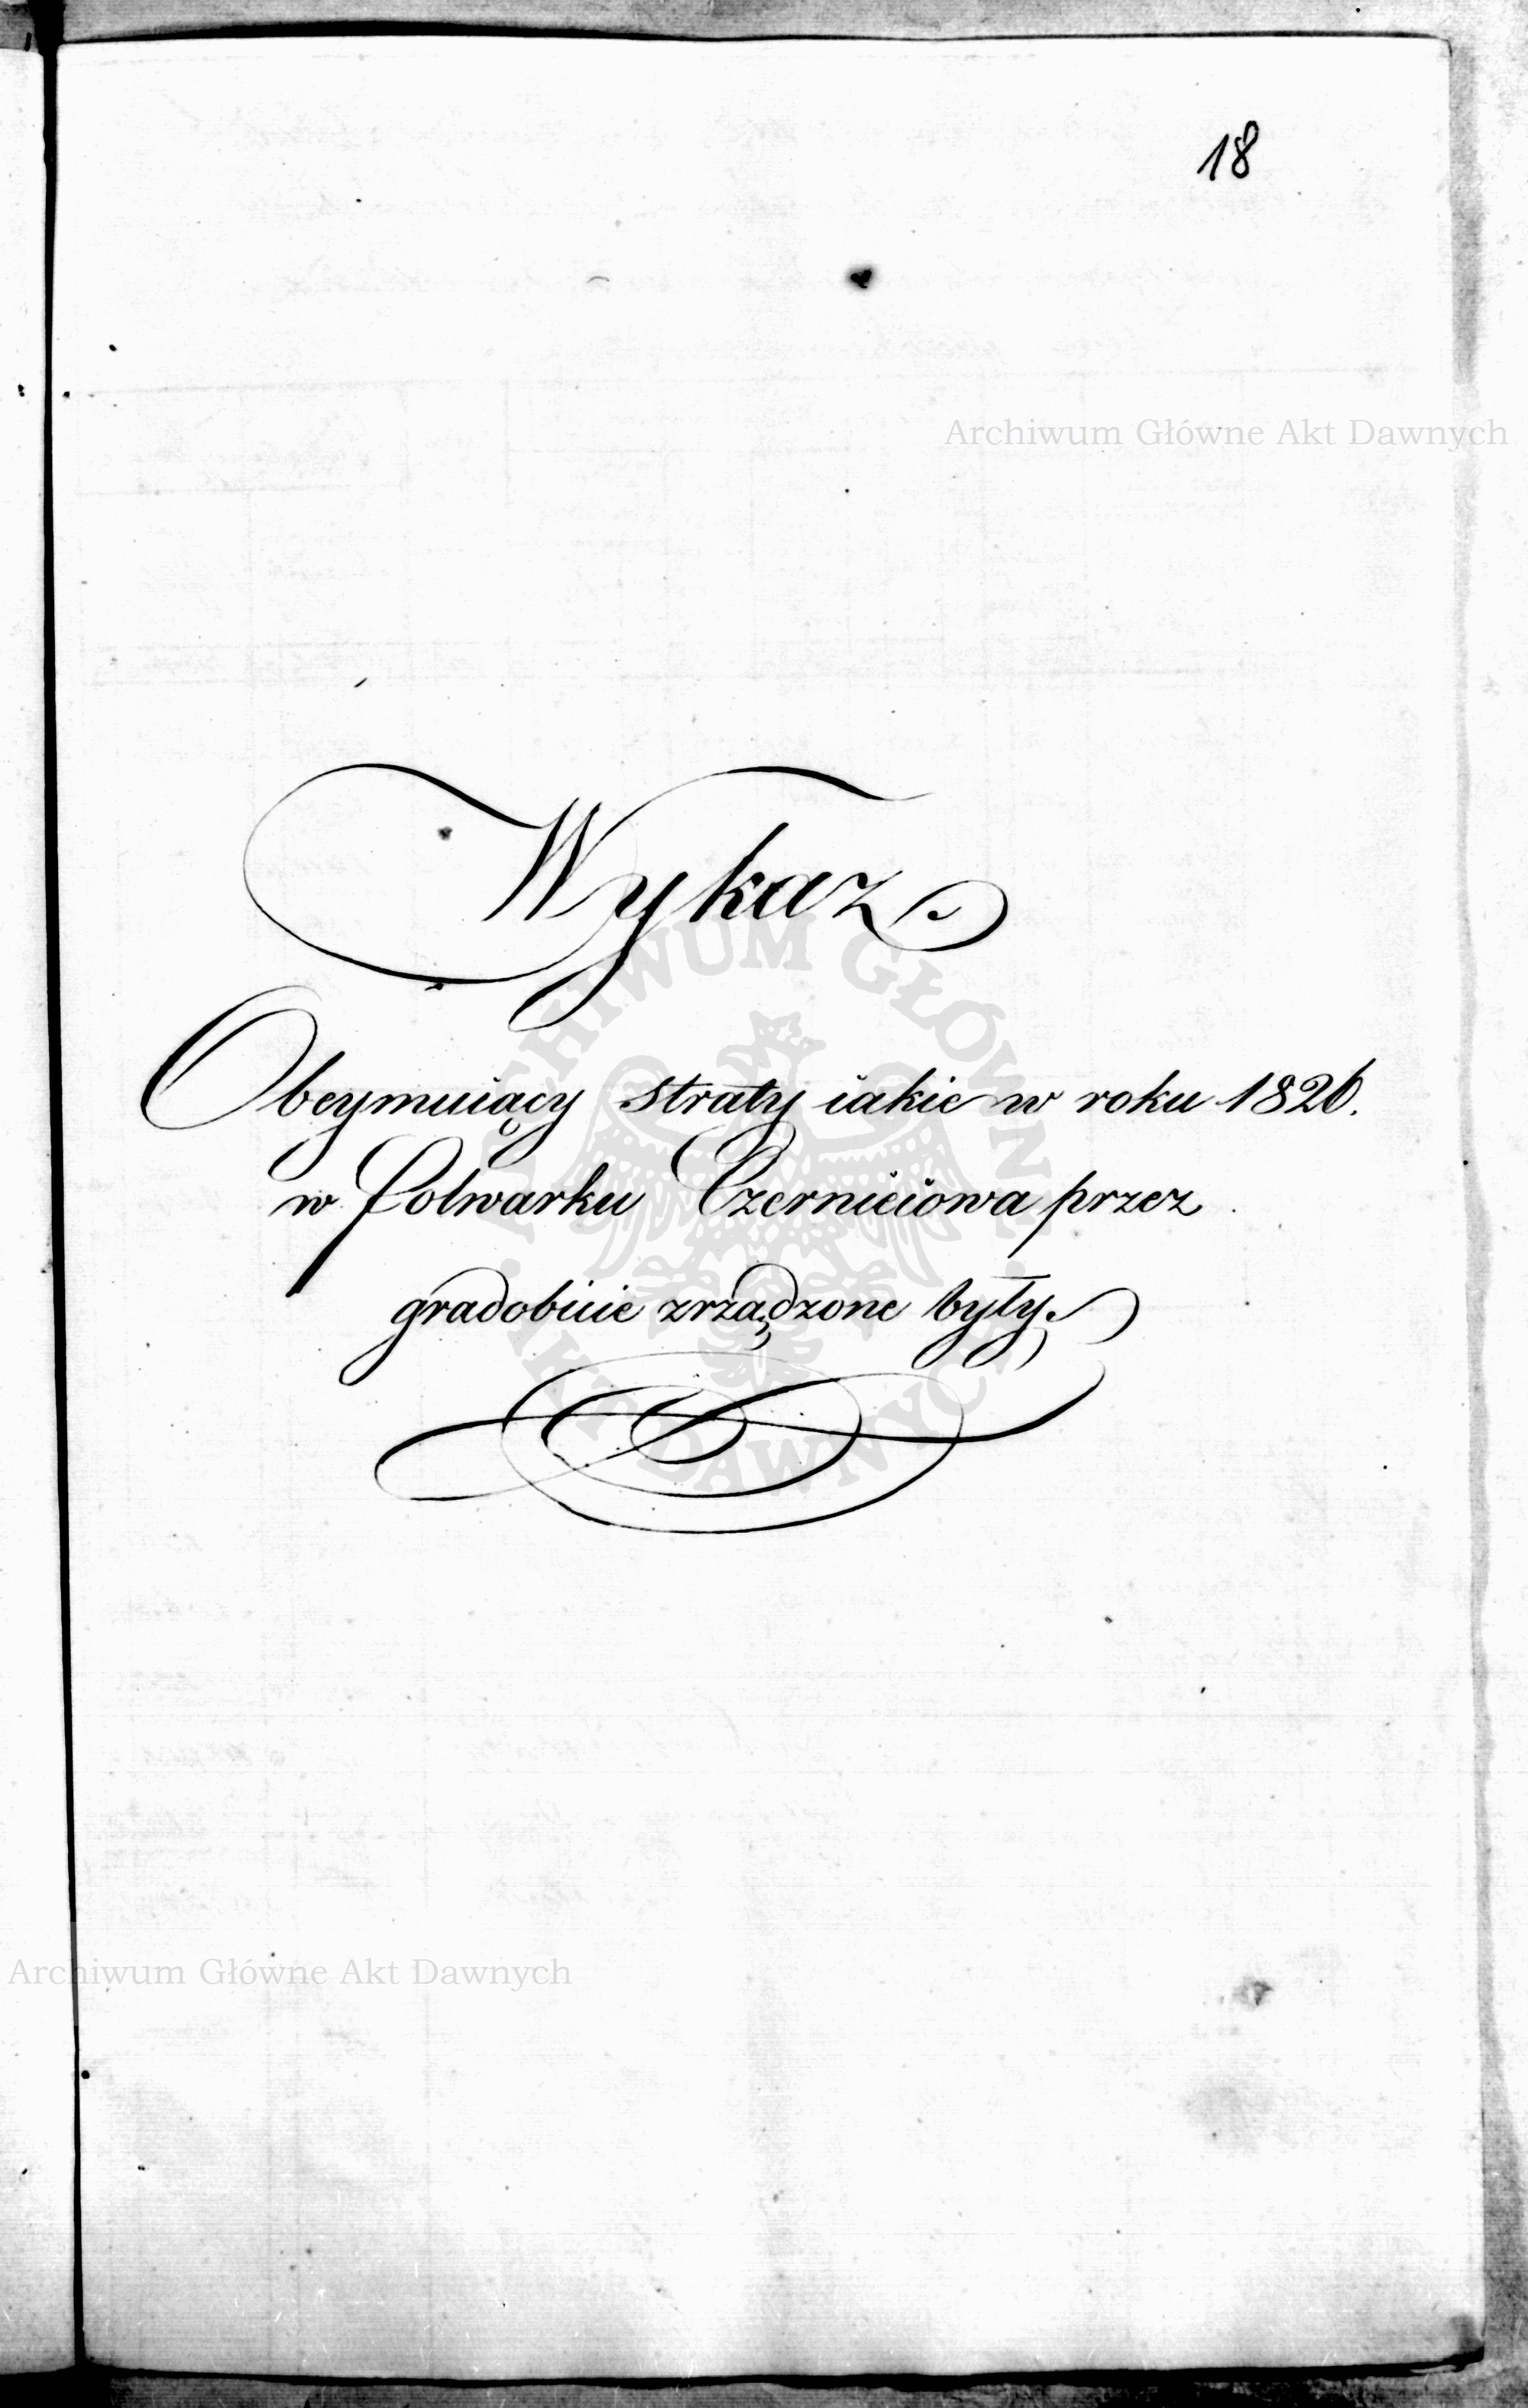 18
Archiwum Główne Akt Dawnych
Wykaz
Obeymuiący straty iakie w roku 1826.
w Folwarku Czerniciowa przez
gradobicie zrządzone były.
ARCHIWUM GŁÓWNE AKT DAWNYCH
Archiwum Główne Akt Dawnych